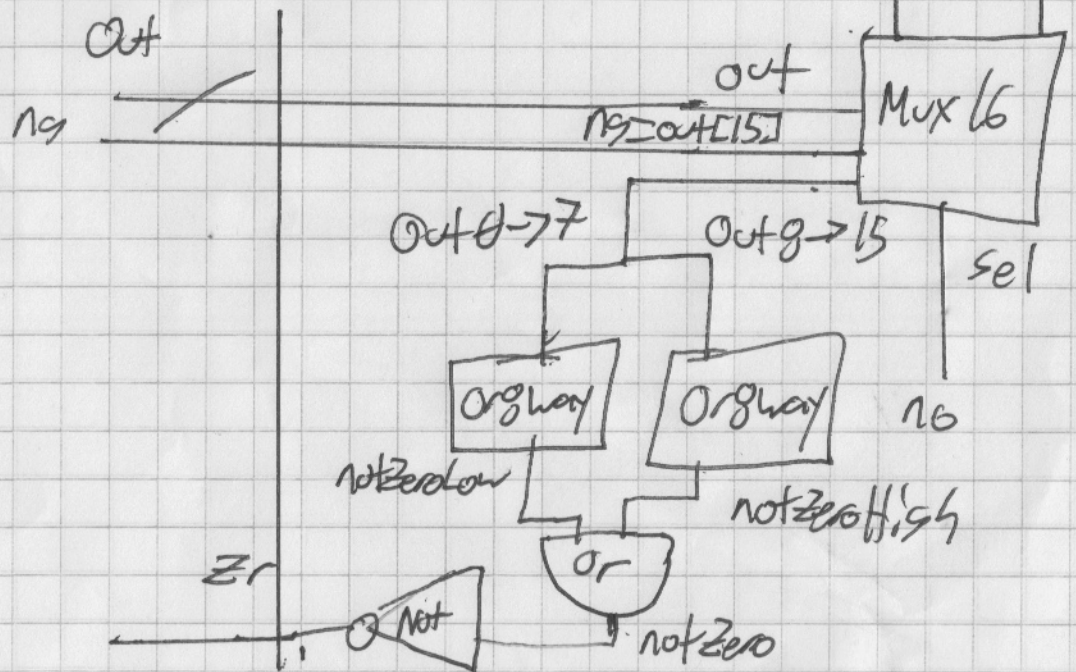 Out
out
Mux 16
ng
ng=out[15]
Out 0->7
Out 8->15
sel
Or8Way
Or8Way
no
notZeroLow
notZeroHigh
Or
Zr
Not
notZero